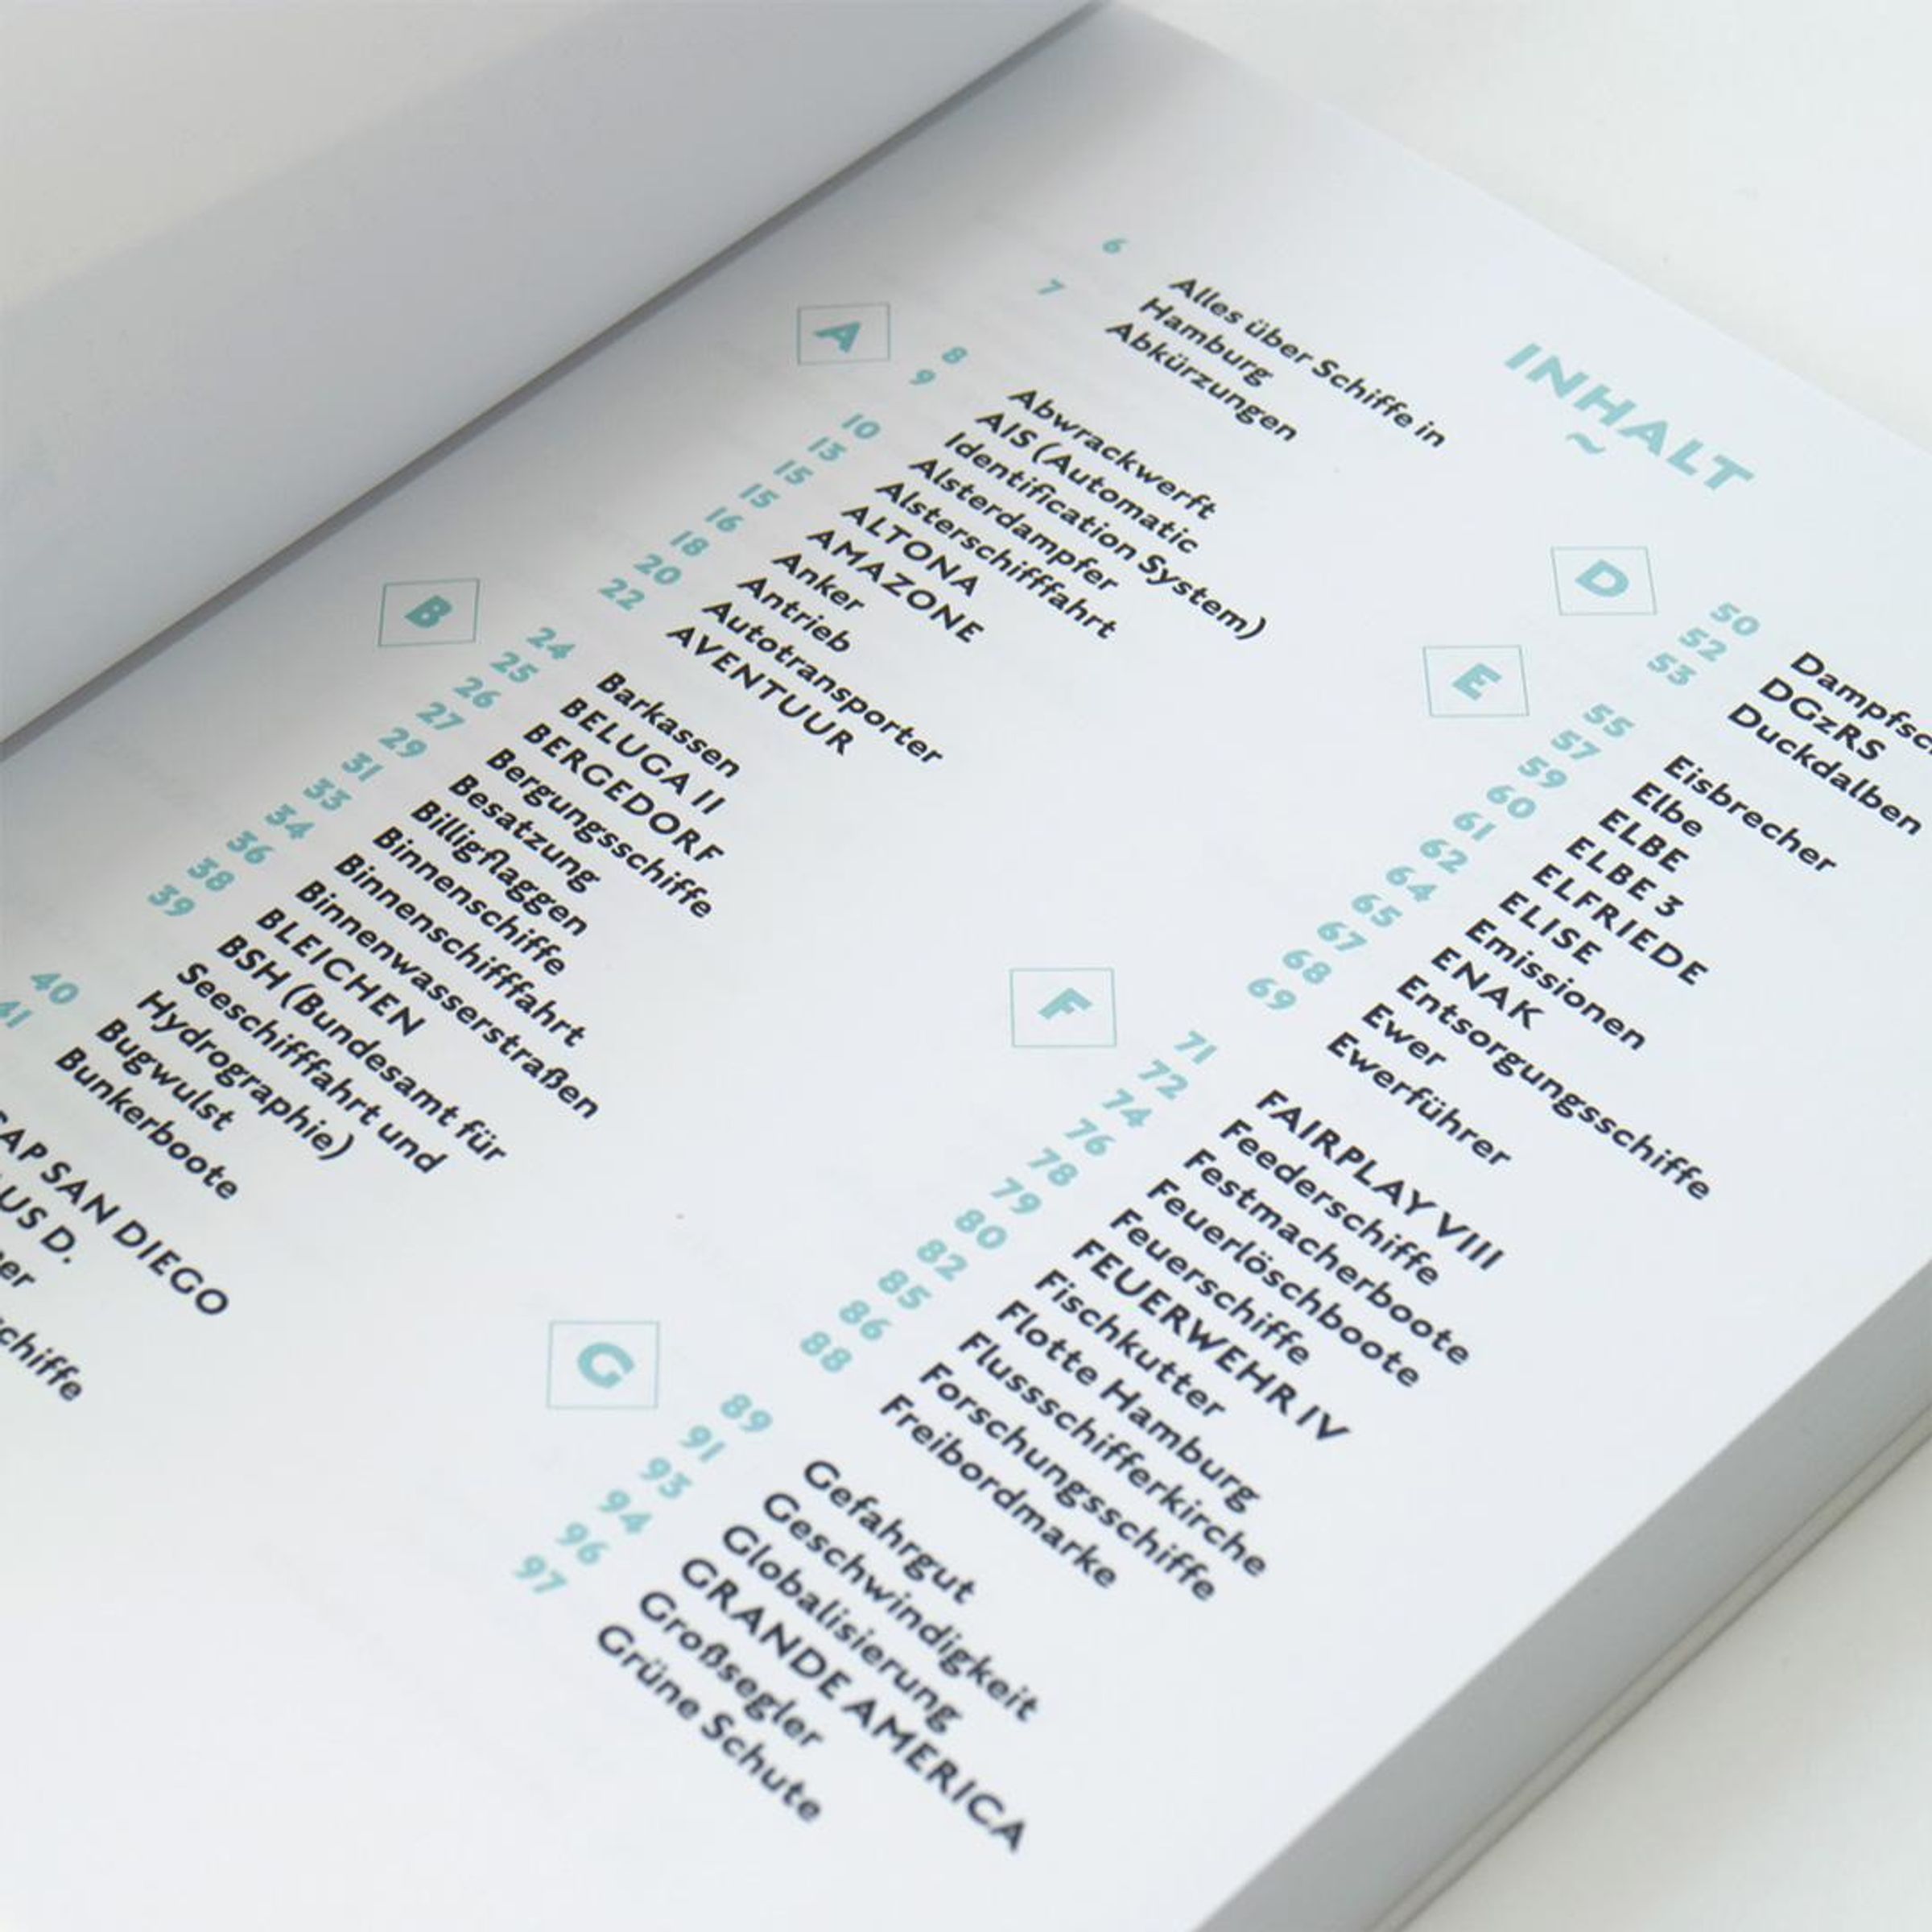 INHALT
~
6 Alles über Schiffe in
Hamburg
7 Abkürzungen
A
8 Abwrackwerft
9 AIS (Automatic
Identification System)
10 Alsterdampfer
13 Alsterschifffahrt
15 ALTONA
15 AMAZONE
16 Anker
18 Antrieb
20 Autotransporter
22 AVENTUUR
B
24 Barkassen
25 BELUGA II
26 BERGEDORF
27 Bergungsschiffe
29 Besatzung
31 Billigflaggen
33 Binnenschiffe
34 Binnenschifffahrt
36 Binnenwasserstraßen
38 BLEICHEN
39 BSH (Bundesamt für
Seeschifffahrt und
Hydrographie)
40 Bugwulst
41 Bunkerboote
CAP SAN DIEGO
D.
D
50
52 DGzRS
53 Duckdalben
E
55 Eisbrecher
57 Elbe
59 ELBE
60 ELBE 3
61 ELFRIEDE
62 ELISE
64 Emissionen
65 ENAK
67 Entsorgungsschiffe
68 Ewer
69 Ewerführer
F
71 FAIRPLAY VIII
72 Feederschiffe
74 Festmacherboote
76 Feuerlöschboote
78 Feuerschiffe
79 FEUERWEHR IV
80 Fischkutter
82 Flotte Hamburg
85 Flussschifferkirche
86 Forschungsschiffe
88 Freibordmarke
G
89 Gefahrgut
91 Geschwindigkeit
93 Globalisierung
94 GRANDE AMERICA
96 Großsegler
97 Grüne Schute